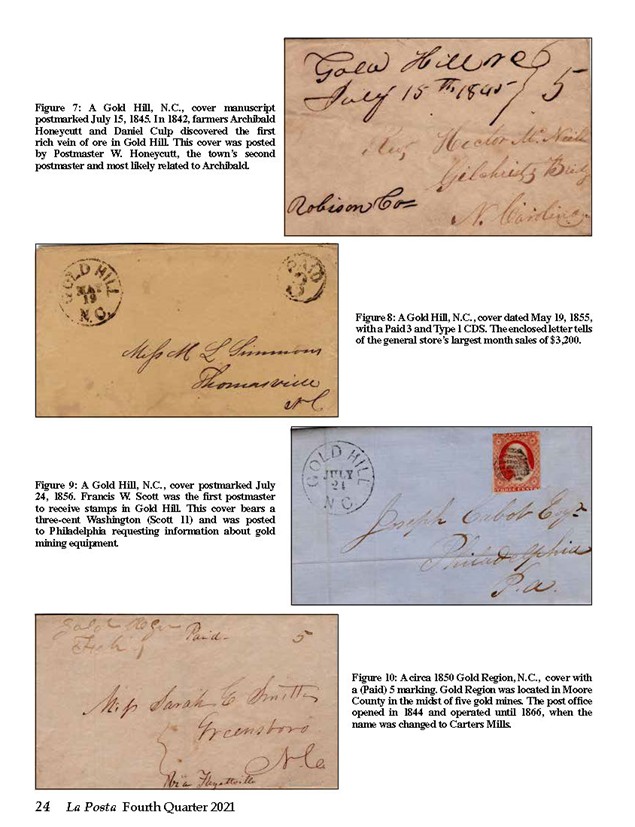 Figure 7: A Gold Hill, N.C., cover manuscript
postmarked July 15, 1845. In 1842, farmers Archibald
Honeycutt and Daniel Culp discovered the first
rich vein of ore in Gold Hill. This cover was posted
by Postmaster W. Honeycutt, the town's second
postmaster and most likely related to Archibald.
Gold Hill NC
July 15th 1845 5
Rev, Hector McNeill
Robison Co=
N. Carolina
GOLD HILL
MAY
19
N.C.
PAID
3
Miss M L Simmons
Thomasville
NC
Figure 8: A Gold Hill, N.C., cover dated May 19, 1855,
with a Paid 3 and Type 1 CDS. The enclosed letter tells
of the general store's largest month sales of $3,200.
Figure 9: A Gold Hill, N.C., cover postmarked July
24, 1856. Francis W. Scott was the first postmaster
to receive stamps in Gold Hill. This cover bears a
three-cent Washington (Scott 11) and was posted
to Philadelphia requesting information about gold
mining equipment.
GOLD HILL
JULY
24
N C
THREE CENTS
Joseph Cabot Esqr
Philadelphia
Pa.
Gold Region
Paid 5
Miss Sarah C Smith
Greensboro
N C
Via Fayetteville
Figure 10: A circa 1850 Gold Region, N.C., cover with
a (Paid) 5 marking. Gold Region was located in Moore
County in the midst of five gold mines. The post office
opened in 1844 and operated until 1866, when the
name was changed to Carters Mills.
24 La Posta Fourth Quarter 2021